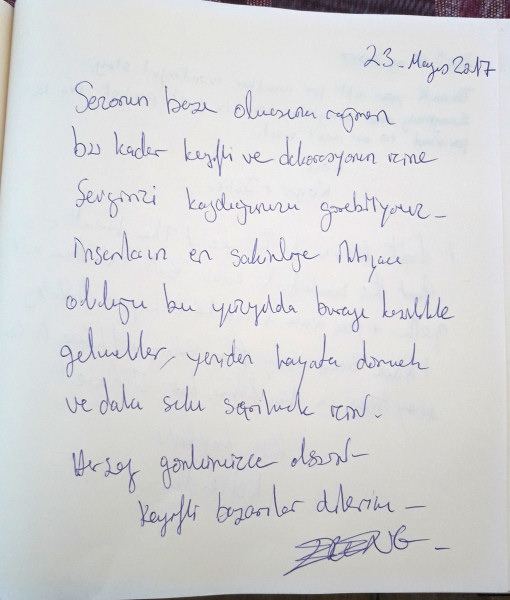 23. Mayıs 2017
Sezonun başı olmasına rağmen
bu kadar keyifli ve dekorasyonun içine
Sevginizi koyduğunuzu görebiliyoruz –
İnsanların en sakinliğe ihtiyacı
olduğu bu yüzyılda buraya kesinlikle
gelmeliler, yeniden hayata dönmek
ve daha sıkı sarılmak için.
Herşey gönlünüzce olsun –
Keyifli başarılar dilerim –